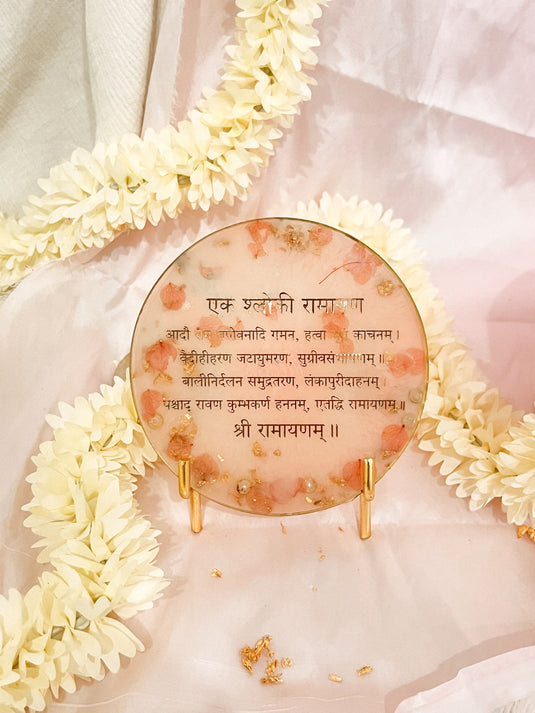 एक श्लोकी रामायण
आदौ तपोवनादि गमन, हत्वा काचनम्।
वैदीहीहरण जटायुमरण, सुग्रीवसंभाषणम्॥
बालीनिर्दलन समुद्रतरण, लंकापुरीदाहनम्
पश्चाद् रावण कुम्भकर्ण हननम्, एतद्धि रामायणम्॥
श्री रामायणम्॥